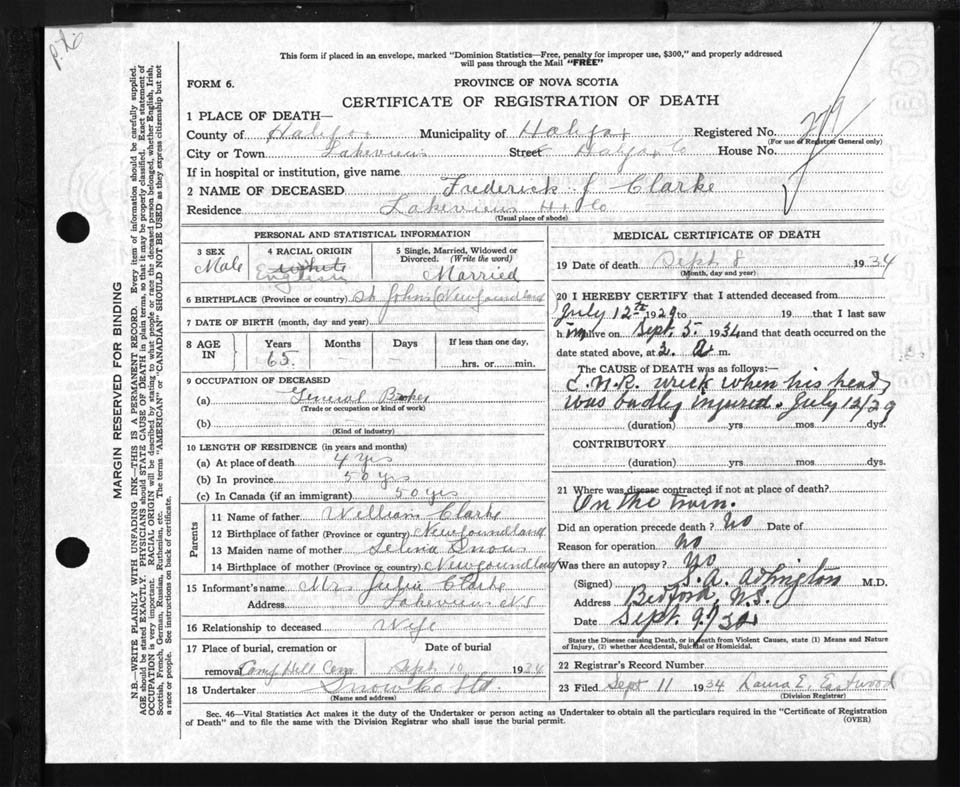 p.26
This form if placed in an envelope, marked "Dominion Statistics—Free, penalty for improper use, $300," and properly addressed
will pass through the Mail "FREE"
FORM 6.
PROVINCE OF NOVA SCOTIA
CERTIFICATE OF REGISTRATION OF DEATH
1 PLACE OF DEATH—
County of Halifax Municipality of Halifax Registered No. 279
(For use of Registrar General only)
City or Town Lakeview Street Halifax Co House No.
If in hospital or institution, give name
2 NAME OF DECEASED Frederick J Clarke
Residence Lakeview Hx Co
(Usual place of abode)
PERSONAL AND STATISTICAL INFORMATION
3 SEX Male
4 RACIAL ORIGIN White English
5 Single, Married, Widowed or Divorced. (Write the word) Married
6 BIRTHPLACE (Province or country) St Johns Newfoundland
7 DATE OF BIRTH (month, day and year)
8 AGE IN Years 65 Months — Days — If less than one day, hrs. or min.
9 OCCUPATION OF DECEASED
(a) General Baker
(Trade or occupation or kind of work)
(b)
(Kind of industry)
10 LENGTH OF RESIDENCE (in years and months)
(a) At place of death 4 yrs
(b) In province 50 yrs
(c) In Canada (if an immigrant) 50 yrs
Parents
11 Name of father William Clarke
12 Birthplace of father (Province or country) Newfoundland
13 Maiden name of mother Selina Snow
14 Birthplace of mother (Province or country) Newfoundland
15 Informant's name Mrs Julia Clarke
Address Lakeview NS
16 Relationship to deceased Wife
17 Place of burial, cremation or removal Camp Hill Cem Date of burial Sept 10 1934
18 Undertaker Snow Co Ltd.
(Name and address)
MEDICAL CERTIFICATE OF DEATH
19 Date of death Sept 8 1934
(Month, day and year)
20 I HEREBY CERTIFY that I attended deceased from
July 12th 1929 to 19 that I last saw
h im alive on Sept. 5 1934 and that death occurred on
date stated above, at 2. a m.
The CAUSE OF DEATH was as follows:—
C.N.R. wreck when his head
was badly injured. July 12/29
(duration) yrs mos dys.
CONTRIBUTORY
(duration) yrs. mos. dys.
21 Where was disease contracted if not at place of death?
On the train.
Did an operation precede death? No Date of
Reason for operation No
Was there an autopsy? No
(Signed) M.D.
Address Bedford, N.S.
Date Sept. 9/34
State the Disease causing Death, or in death from Violent Causes, state (1) Means and Nature
of Injury, (2) whether Accidental, Suicidal or Homicidal.
22 Registrar's Record Number
23 Filed Sept 11 1934 Laura E. Eastwood
(Division Registrar)
Sec. 46—Vital Statistics Act makes it the duty of the Undertaker or person acting as Undertaker to obtain all the particulars required in the "Certificate of Registration
of Death" and to file the same with the Division Registrar who shall issue the burial permit.
(OVER)
MARGIN RESERVED FOR BINDING
N.B.—WRITE PLAINLY WITH UNFADING INK—THIS IS A PERMANENT RECORD. Every item of information should be carefully supplied.
AGE should be stated EXACTLY. PHYSICIANS should STATE CAUSE OF DEATH in plain terms, so that it may be properly classified. Exact statement of
OCCUPATION is very important. RACIAL ORIGIN will be described by stating to what people or race the deceased person belonged, whether English, Irish,
Scottish, French, German, Russian, Ruthenian, etc. The terms "AMERICAN" or "CANADIAN" SHOULD NOT BE USED as they express citizenship but not
a race or people. See instructions on back of certificate.